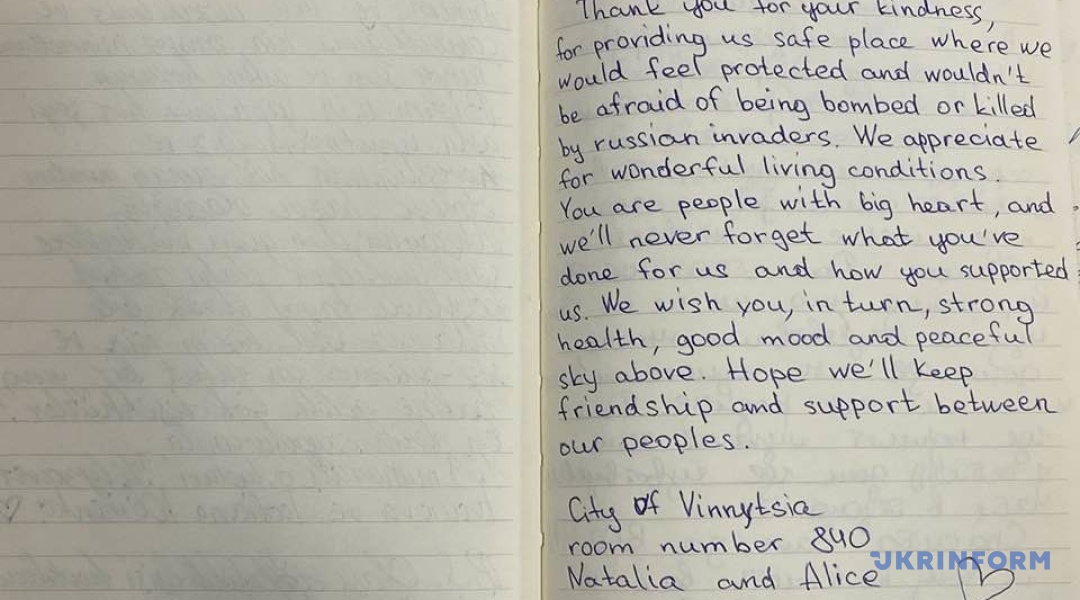 Thank you for your kindness,
for providing us safe place where we
would feel protected and wouldn't
be afraid of being bombed or killed
by russian invaders. We appreciate
for wonderful living conditions.
You are people with big heart, and
we'll never forget what you've
done for us and how you supported
us. We wish you, in turn, strong
health, good mood and peaceful
sky above. Hope we'll keep
friendship and support between
our peoples.
City of Vinnytsia
room number 840
Natalia and Alice
UKRINFORM